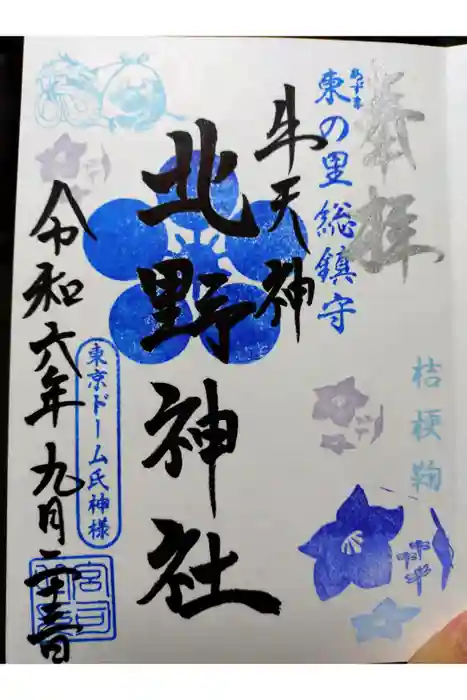 奉拝
東の里総鎮守
あずま
桔梗鞠
牛天神
北野神社
東京ドーム氏神様
令和六年九月二十三日
宮司